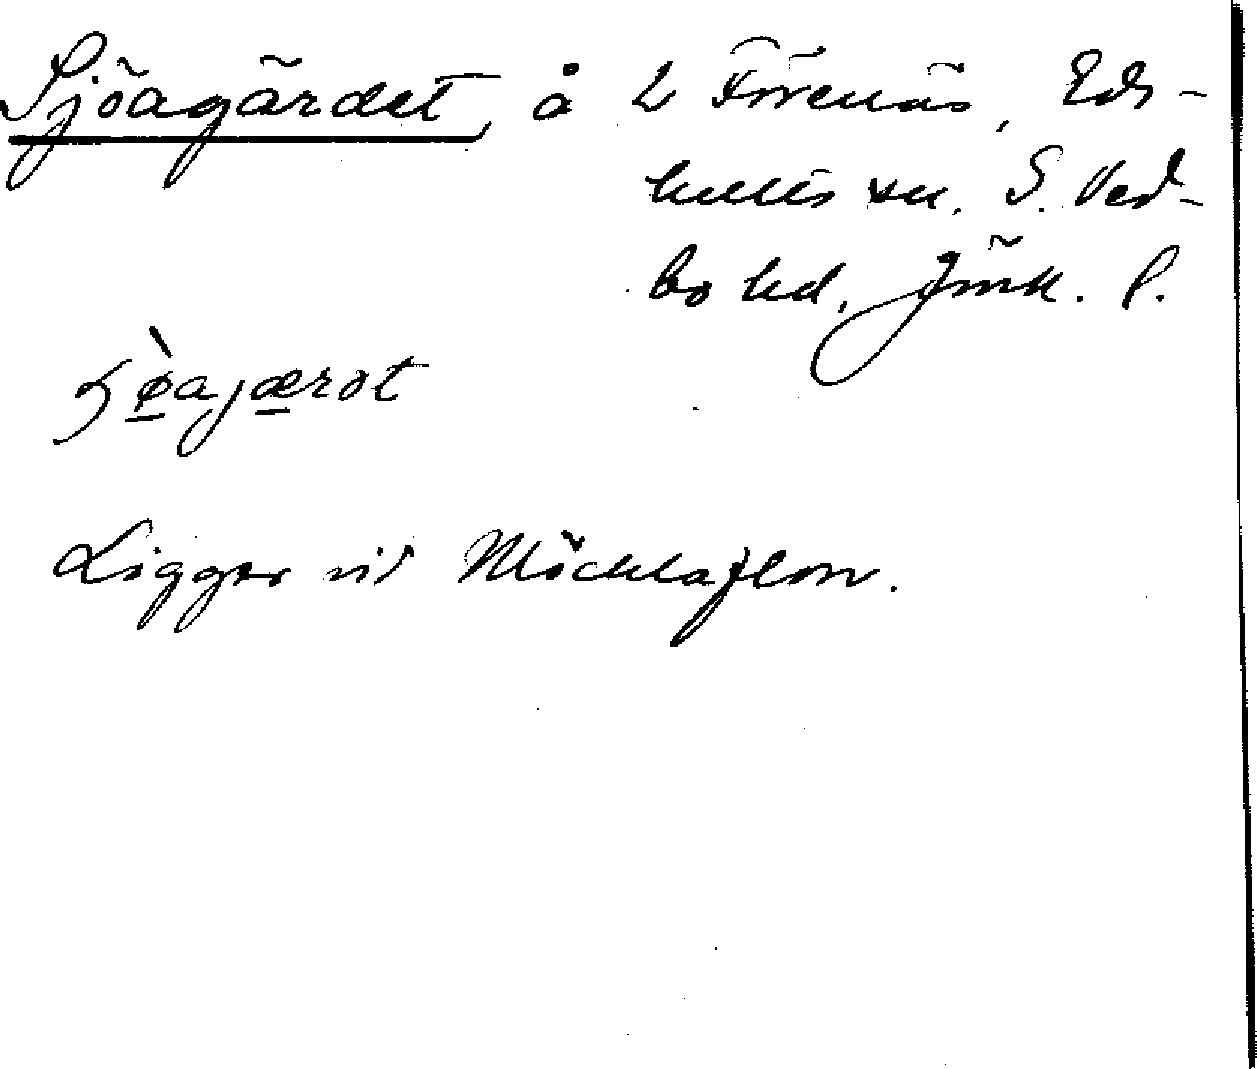 Sjöagärdet, å L Förenäs, Eds-
hults sn. S. Ved-
bo hd, Jönk. l.
ʂø̀ajærdt
Ligger vid Mycklaflon.